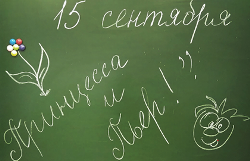 15 сентября
Принцесса
и
Пьер!"